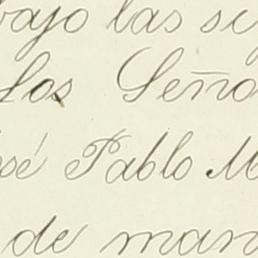 bajo las si
los Seño
osé Pablo M
de man